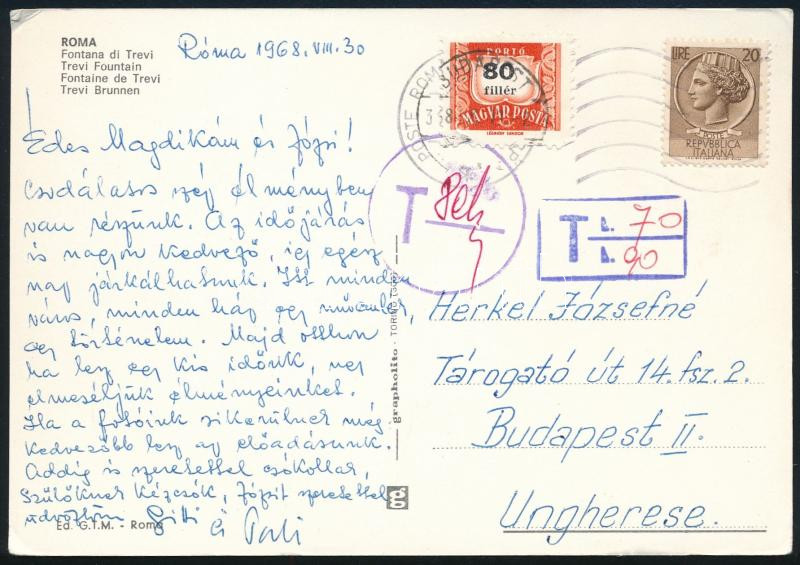 ROMA
Fontana di Trevi
Trevi Fountain
Fontaine de Trevi
Trevi Brunnen
Róma 1968. VIII. 30
PORTÓ
80
fillér
MAGYAR POSTA
LIRE 20
POSTE
REPVBBLICA
ITALIANA
POSTE ROMA
Édes Magdikám és Józsi!
Csodálatos szép élményben
van részünk. Az időjárás
is nagyon kedvező, így egész
nap járkálhatunk. Itt minden
város, minden ház egy műemlék,
egy történelem. Majd otthon
ha lesz egy kis időnk,
elmeséljük élményeinket.
Ha a fotóink sikerülnek még
kedvezőbb lesz az előadásunk.
Addig is szeretettel csókollak,
Szülőknek kézcsók, Józsit szeretettel
üdvözlöm
és Pali
T
T L. 70
L. 90
grapholito - TORINO
Herkel Józsefné
Tárogató út 14. fsz. 2.
Budapest II.
Ungherese.
Ed. G.T.M. - Roma